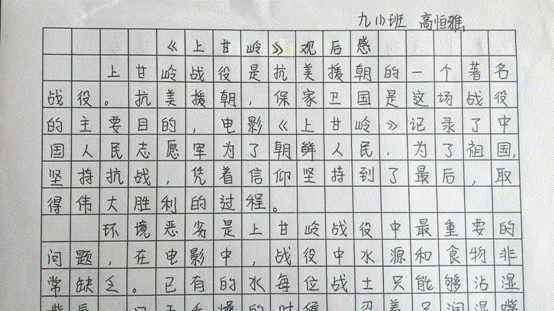 九(1)班 高恒雅
《上甘岭》观后感
上甘岭战役是抗美援朝的一个著名
战役。抗美援朝，保家卫国是这场战役
的主要目的，电影《上甘岭》记录了中
国人民志愿军为了朝鲜人民，为了祖国，
坚持抗战，凭着信仰坚持到了最后，取
得伟大胜利的过程。
环境恶劣是上甘岭战役中最重要的
问题，在电影中，战役中水源和食物非
常缺乏。已有的水每位战士只能够沾湿
的时候